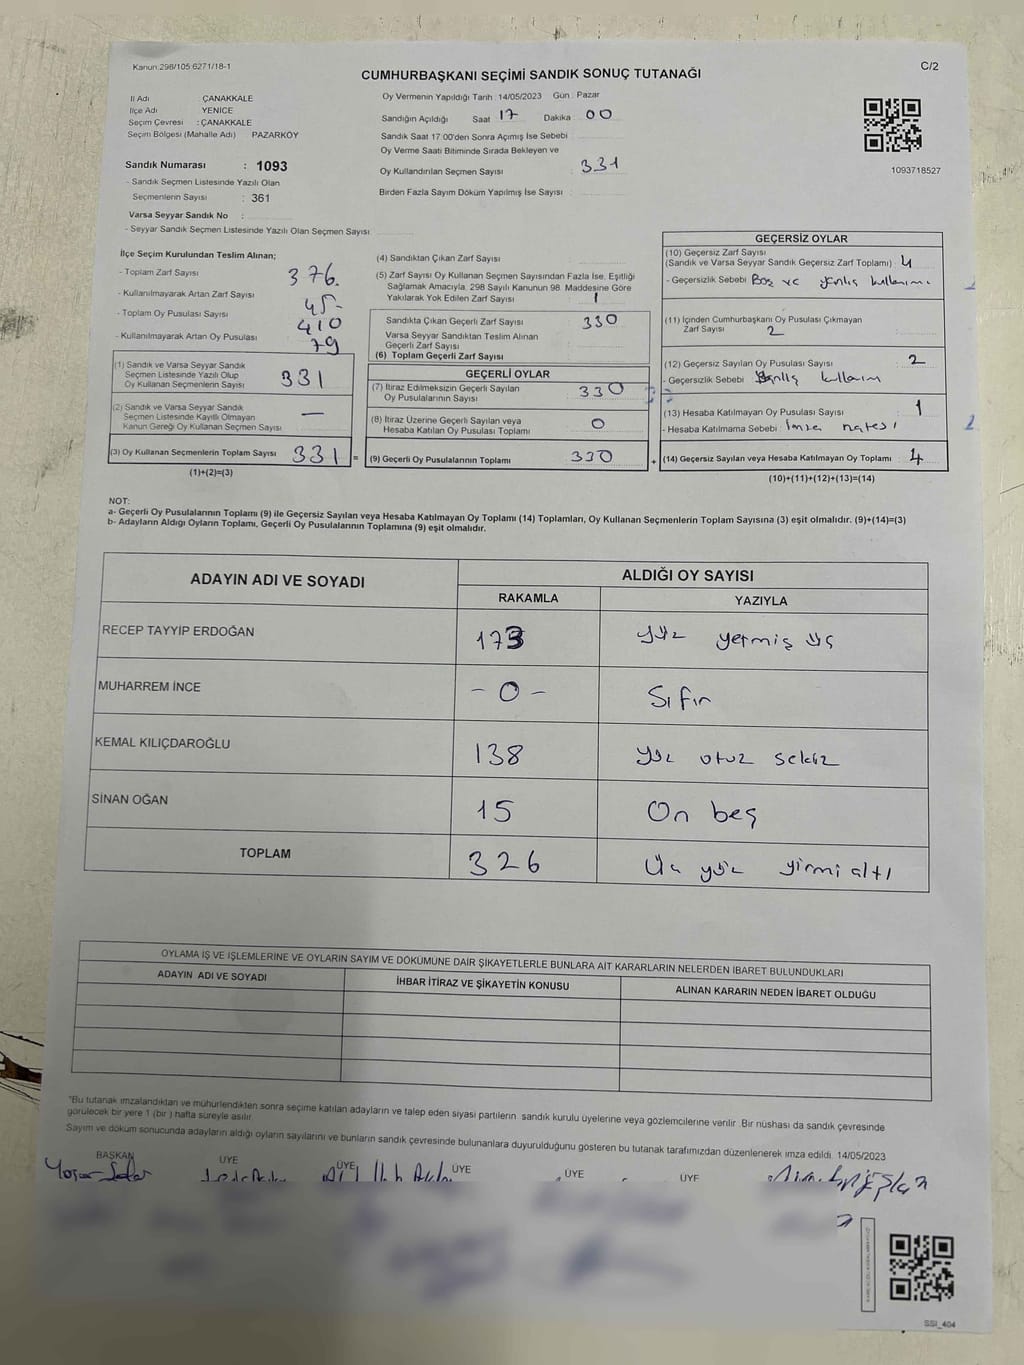 Kanun:298/105 6271/18-1
C/2
CUMHURBAŞKANI SEÇİMİ SANDIK SONUÇ TUTANAĞI
İl Adı : ÇANAKKALE
İlçe Adı : YENİCE
Seçim Çevresi : ÇANAKKALE
Seçim Bölgesi (Mahalle Adı) PAZARKÖY
Sandık Numarası : 1093
- Sandık Seçmen Listesinde Yazılı Olan
Seçmenlerin Sayısı : 361
Varsa Seyyar Sandık No :
- Seyyar Sandık Seçmen Listesinde Yazılı Olan Seçmen Sayısı
Oy Vermenin Yapıldığı Tarih : 14/05/2023 Gün : Pazar
Sandığın Açıldığı Saat 17 Dakika 00
Sandık Saat 17:00'den Sonra Açımış İse Sebebi
Oy Verme Saati Bitiminde Sırada Bekleyen ve
Oy Kullandırılan Seçmen Sayısı : 331
Birden Fazla Sayım Döküm Yapılmış İse Sayısı :
1093718527
İlçe Seçim Kurulundan Teslim Alınan;
- Toplam Zarf Sayısı 376.
- Kullanılmayarak Artan Zarf Sayısı 45-
- Toplam Oy Pusulası Sayısı 410
- Kullanılmayarak Artan Oy Pusulası 79
(1) Sandık ve Varsa Seyyar Sandık
Seçmen Listesinde Yazılı Olup
Oy Kullanan Seçmenlerin Sayısı 331
(2) Sandık ve Varsa Seyyar Sandık
Seçmen Listesinde Kayıtlı Olmayan
Kanun Gereği Oy Kullanan Seçmen Sayısı —
(3) Oy Kullanan Seçmenlerin Toplam Sayısı 331 =
(1)+(2)=(3)
(4) Sandıktan Çıkan Zarf Sayısı :
(5) Zarf Sayısı Oy Kullanan Seçmen Sayısından Fazla İse, Eşitliği
Sağlamak Amacıyla, 298 Sayılı Kanunun 98. Maddesine Göre
Yakılarak Yok Edilen Zarf Sayısı : 1
Sandıkta Çıkan Geçerli Zarf Sayısı : 330
Varsa Seyyar Sandıktan Teslim Alınan
Geçerli Zarf Sayısı :
(6) Toplam Geçerli Zarf Sayısı
GEÇERLİ OYLAR
(7) İtiraz Edilmeksizin Geçerli Sayılan
Oy Pusulalarının Sayısı : 330
(8) İtiraz Üzerine Geçerli Sayılan veya
Hesaba Katılan Oy Pusulası Toplamı : 0
(9) Geçerli Oy Pusulalarının Toplamı : 330 +
GEÇERSİZ OYLAR
(10) Geçersiz Zarf Sayısı
(Sandık ve Varsa Seyyar Sandık Geçersiz Zarf Toplamı) : 4
- Geçersizlik Sebebi Boş ve yanlış kullanımı
(11) İçinden Cumhurbaşkanı Oy Pusulası Çıkmayan
Zarf Sayısı 2
(12) Geçersiz Sayılan Oy Pusulası Sayısı : 2
- Geçersizlik Sebebi Yanlış kullanım
(13) Hesaba Katılmayan Oy Pusulası Sayısı : 1
- Hesaba Katılmama Sebebi : İmza hatası
(14) Geçersiz Sayılan veya Hesaba Katılmayan Oy Toplamı : 4
(10)+(11)+(12)+(13)=(14)
NOT:
a- Geçerli Oy Pusulalarının Toplamı (9) ile Geçersiz Sayılan veya Hesaba Katılmayan Oy Toplamı (14) Toplamları, Oy Kullanan Seçmenlerin Toplam Sayısına (3) eşit olmalıdır. (9)+(14)=(3)
b- Adayların Aldığı Oyların Toplamı, Geçerli Oy Pusulalarının Toplamına (9) eşit olmalıdır.
ADAYIN ADI VE SOYADI ALDIĞI OY SAYISI
RAKAMLA YAZIYLA
RECEP TAYYİP ERDOĞAN 173 yüz yetmiş üç
MUHARREM İNCE - 0 - Sıfır
KEMAL KILIÇDAROĞLU 138 yüz otuz sekiz
SİNAN OĞAN 15 On beş
TOPLAM 326 Üç yüz yirmi altı
OYLAMA İŞ VE İŞLEMLERİNE VE OYLARIN SAYIM VE DÖKÜMÜNE DAİR ŞİKAYETLERLE BUNLARA AİT KARARLARIN NELERDEN İBARET BULUNDUKLARI
ADAYIN ADI VE SOYADI İHBAR İTİRAZ VE ŞİKAYETİN KONUSU ALINAN KARARIN NEDEN İBARET OLDUĞU
*Bu tutanak imzalandıktan ve mühürlendikten sonra seçime katılan adayların ve talep eden siyasi partilerin sandık kurulu üyelerine veya gözlemcilerine verilir. Bir nüshası da sandık çevresinde
görülecek bir yere 1 (bir ) hafta süreyle asılır.
Sayım ve döküm sonucunda adayların aldığı oyların sayılarını ve bunların sandık çevresinde bulunanlara duyurulduğunu gösteren bu tutanak tarafımızdan düzenlenerek imza edildi. 14/05/2023
BAŞKAN ÜYE ÜYE ÜYE ÜYE ÜYE
SSI_404